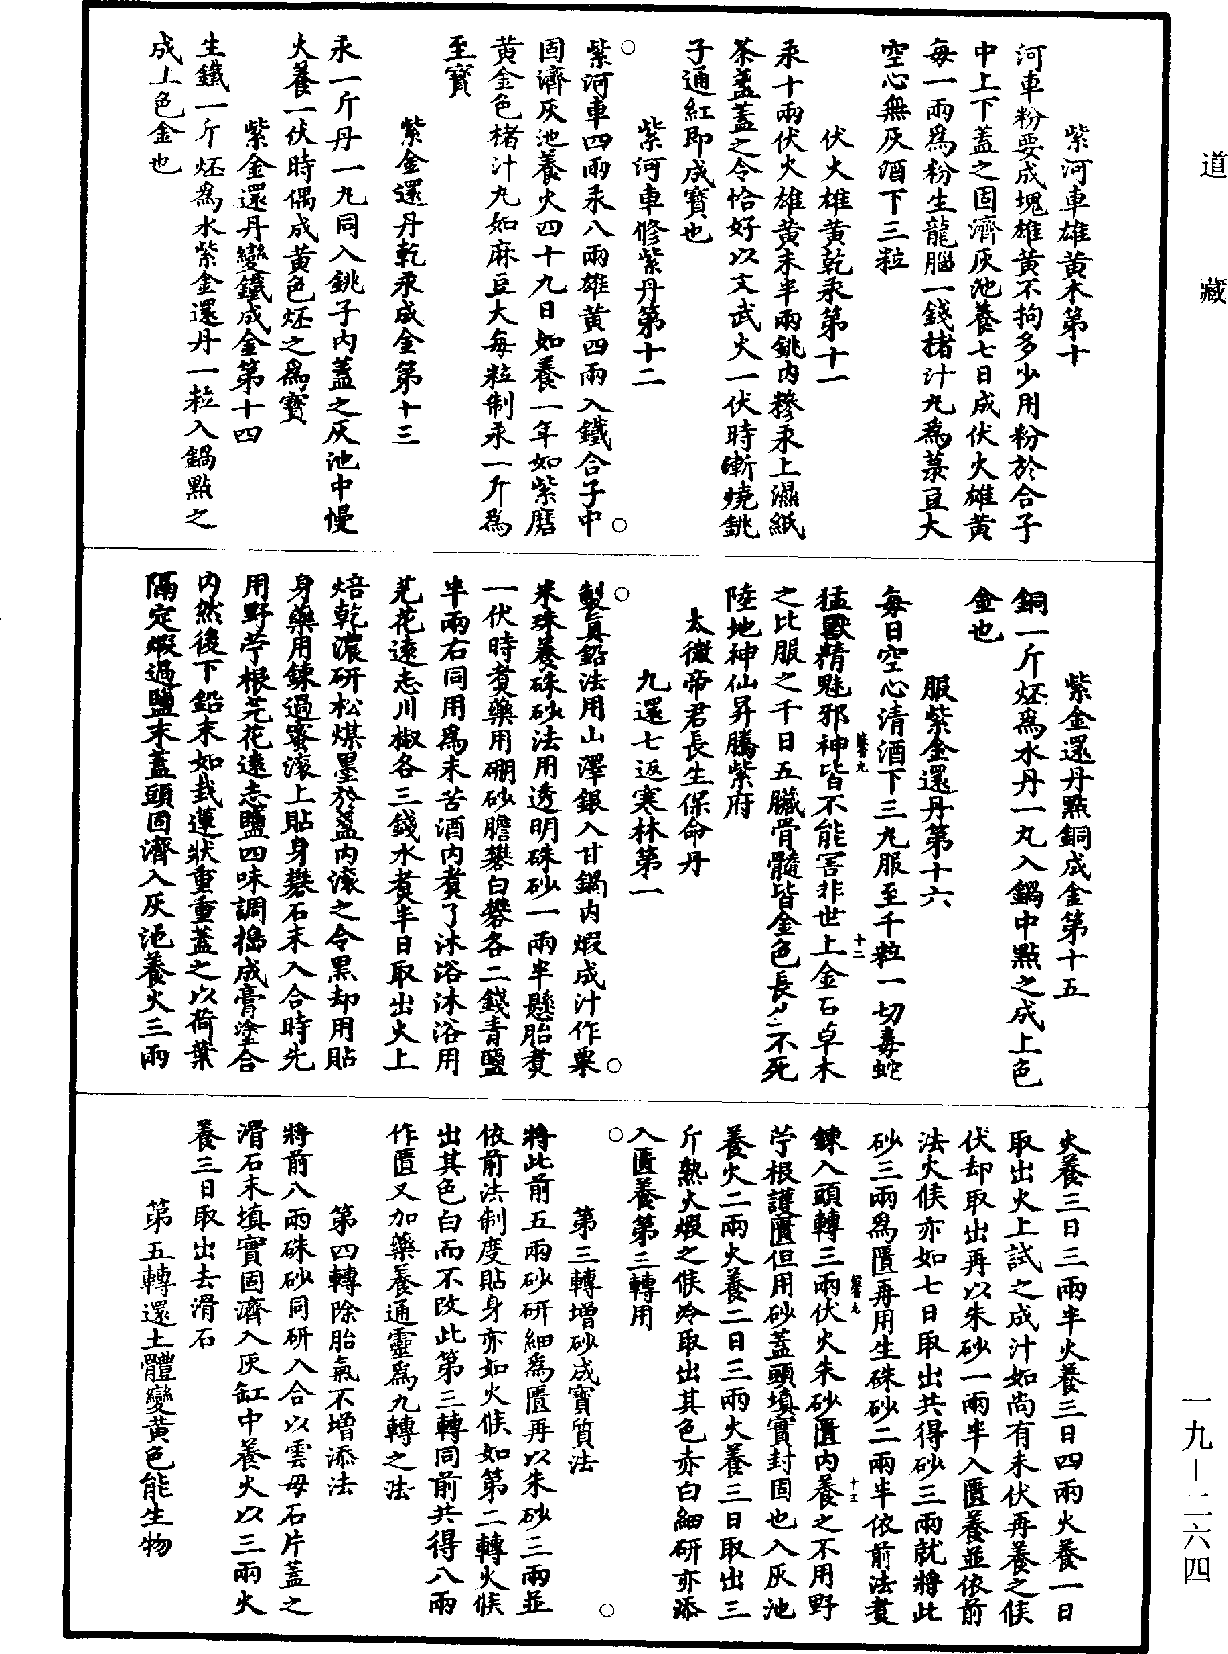 道藏
紫河車雄黃木第十
河車粉要成塊雄黃不拘多少用粉於合子
中上下蓋之固濟灰池養七日成伏火雄黃
每一兩爲粉生龍腦一錢楮汁丸爲菉豆大
空心無灰酒下三粒
伏火雄黃乾汞第十一
汞十兩伏火雄黃末半兩銚內糝汞上濕紙
茶盞蓋之令恰好以文武火一伏時漸燒銚
子通紅即成寶也
紫河車修紫丹第十二
紫河車四兩汞八兩雄黃四兩入鐵合子中
固濟灰池養火四十九日如養一年如紫磨
黃金色楮汁丸如麻豆大每粒制汞一斤爲
至寶
紫金還丹乾汞成金第十三
汞一斤丹一丸同入銚子內蓋之灰池中慢
火養一伏時偶成黃色坯之爲寶
紫金還丹變鐵成金第十四
生鐵一斤坯爲水紫金還丹一粒入鍋點之
成上色金也
紫金還丹點銅成金第十五
銅一斤坯爲水丹一丸入鍋中點之成上色
金也
服紫金還丹第十六
每日空心清酒下三丸服至千粒一切毒蛇
猛獸精魅邪神皆不能害非世上金石草木
之比服之千日五臟骨髓皆金色長生不死
陸地神仙昇騰紫府
太微帝君長生保命丹
九還七返寒林第一
製真鉛法用山澤銀入甘鍋內煅成汁作粟
米珠養硃砂法用透明硃砂一兩半懸胎煮
一伏時煮藥用硼砂膽礬白礬各二錢青鹽
半兩右同用爲末苦酒內煮了沐浴沐浴用
芫花遠志川椒各三錢水煮半日取出火上
焙乾濃研松煤墨於盞內滾之令黑却用貼
身藥用鍊過蜜滾上貼身礬石末入合時先
用野苧根芫花遠志鹽四味調搗成膏塗合
內然後下鉛末如栽蓮狀重重蓋之以荷葉
隔定煅過鹽末蓋頭固濟入灰池養火三兩
火養三日三兩半火養三日四兩火養一日
取出火上試之成汁如尚有未伏再養之候
伏却取出再以朱砂一兩半入匱養並依前
法火候亦如七日取出共得砂三兩就將此
砂三兩爲匱再用生硃砂二兩半依前法煮
鍊入頭轉三兩伏火朱砂匱內養之不用野
苧根護匱但用砂蓋頭填實封固也入灰池
養火二兩火養二日三兩火養三日取出三
斤熟火煅之候冷取出其色亦白細研亦添
入匱養第三轉用
第三轉增砂成寶質法
將此前五兩砂研細爲匱再以朱砂三兩並
依前法制度貼身亦如火候如第二轉火候
出其色白而不改此第三轉同前共得八兩
作匱又加藥養通靈爲九轉之法
第四轉除胎氣不增添法
將前八兩硃砂同研入合以雲母石片蓋之
滑石末填實固濟入灰缸中養火以三兩火
養三日取出去滑石
第五轉還土體變黃色能生物
一九—二六四